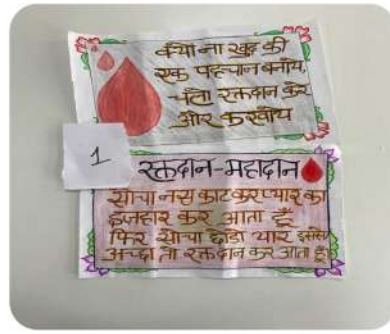 क्यो ना खुद की
एक पहचान बनाये,
चलो रक्तदान करे
और करवाये
1
रक्तदान-महादान
सोचा नस काटकर प्यार का
इजहार कर आता हूँ
फिर सोचा छोडो यार इससे
अच्छा तो रक्तदान कर आता हूँ